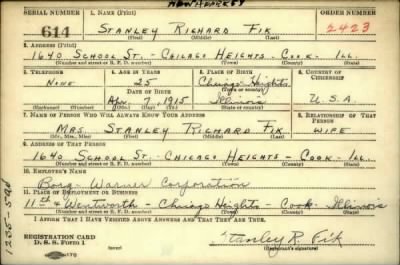 SERIAL NUMBER 1. NAME (Print) ORDER NUMBER
614 STANLEY RICHARD FIK 2423
(First) (Middle) (Last)
2. ADDRESS (Print)
1640 SCHOOL ST. - CHICAGO HEIGHTS - COOK - ILL.
(Number and street or R. F. D. number) (Town) (County) (State)
3. TELEPHONE 4. AGE IN YEARS 5. PLACE OF BIRTH 6. COUNTRY OF CITIZENSHIP
NONE 25 Chicago Heights
DATE OF BIRTH (Town or county)
Apr 7, 1915 Illinois U.S.A.
(Exchange) (Number) (Mo.) (Day) (Yr.) (State or country)
7. NAME OF PERSON WHO WILL ALWAYS KNOW YOUR ADDRESS 8. RELATIONSHIP OF THAT PERSON
MRS. STANLEY RICHARD FIK WIFE
(Mr., Mrs., Miss) (First) (Middle) (Last)
9. ADDRESS OF THAT PERSON
1640 SCHOOL ST - CHICAGO HEIGHTS - COOK - ILL.
(Number and street or R. F. D. number) (Town) (County) (State)
10. EMPLOYER'S NAME
Borg-Warner Corporation
11. PLACE OF EMPLOYMENT OR BUSINESS
11th & Wentworth - Chicago Heights - Cook - Illinois
(Number and street or R. F. D. number) (Town) (County) (State)
I AFFIRM THAT I HAVE VERIFIED ABOVE ANSWERS AND THAT THEY ARE TRUE.
REGISTRATION CARD
D. S. S. Form 1
Stanley R. Fik
(Registrant's signature)